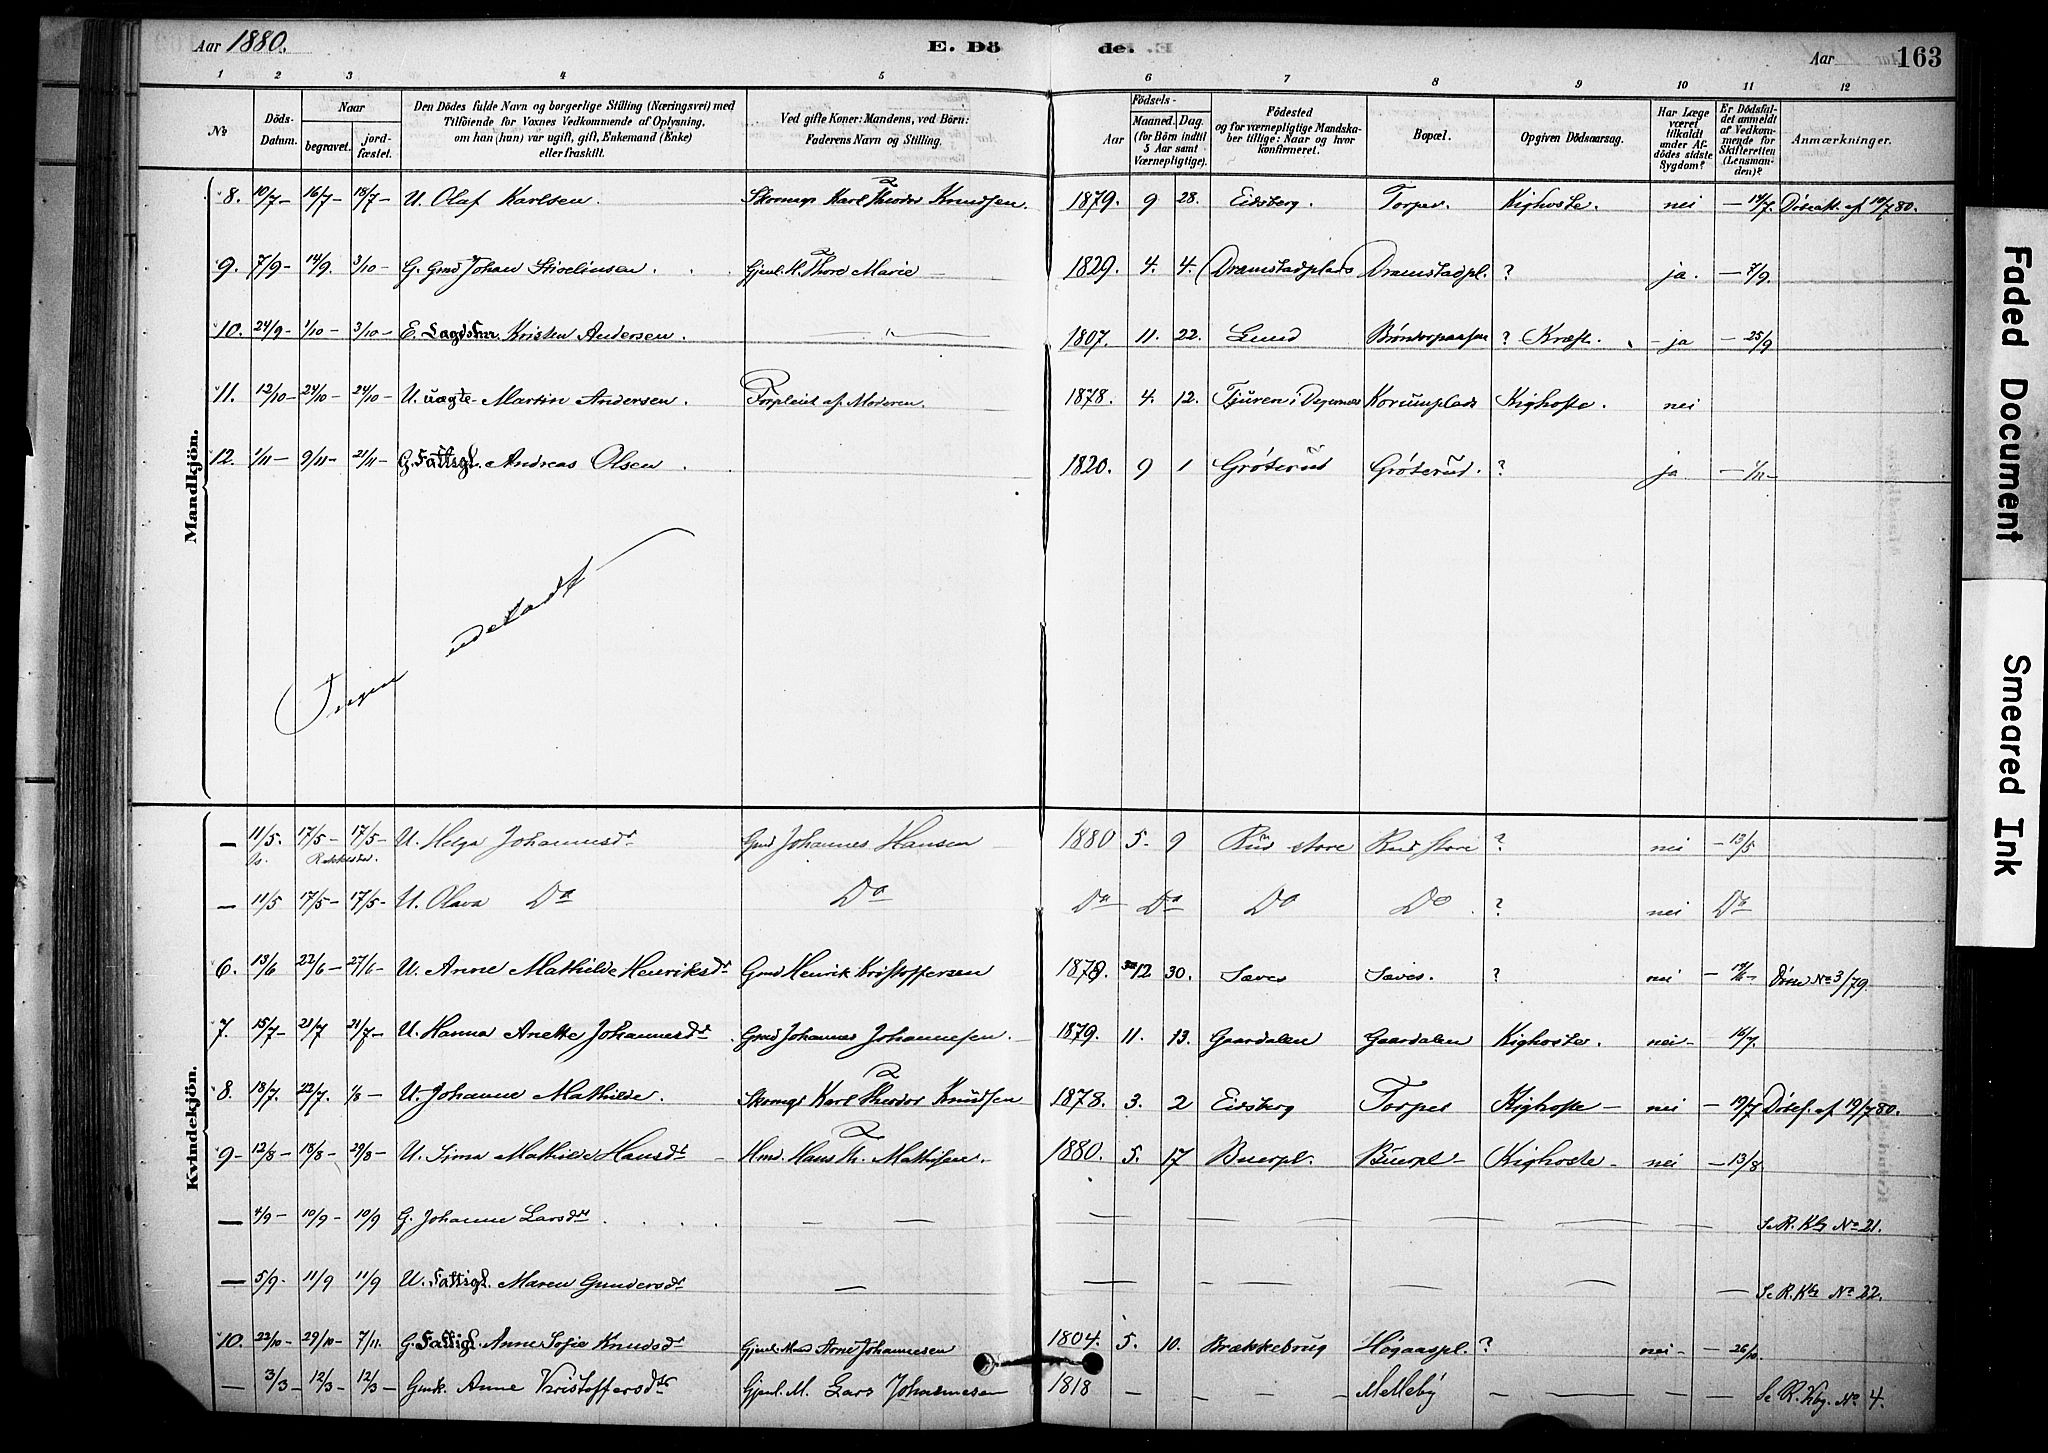 Aar 1880.
E. Dö
de.
Aar
163
1 2 3 4 5 6 7 8 9 10 11 12
No
Döds-Datum.
Naar
begravet.
jord-fæstet.
Den Dödes fulde Navn og borgerlige Stilling (Næringsvei) med Tilföiende for Voxnes Vedkommende af Oplysning, om han (hun) var ugift, gift, Enkemand (Enke) eller fraskilt.
Ved gifte Koner: Mandens, ved Börn: Faderens Navn og Stilling.
Födsels-
Aar
Maaned. Dag.
(for Börn indtil 5 Aar samt Værnepligtige).
Födested og for værnepligtige Mandskaber tillige: Naar og hvor konfirmeret.
Bopæl.
Opgiven Dödsaarsag.
Har Læge været tilkaldt under Afdödes sidste Sygdom?
Er Dödsfaldet anmeldt af Vedkommende for Skifteretten (Lensmanden)?
Anmærkninger.
Mandkjön.
8. 10/7 - 16/7 - 18/7 - U. Olaf Karlsen. Karl Theodor Knudsen. 1879. 9 28. Eidsberg. Torper. Kighoste. nei - 14/7.
9. 7/9 - 14/9. 3/10 - G. Gmd Johan Marie 1829. 4. 4. Dramstadplads Dramstadpl. ? ja. - 7/9.
10. 24/9 - 1/10 - 3/10 - E. Lægdslm Kristen Andersen. - " - 1807. 11. 22. Lund ? Kræft. - ja - 25/9
11. 12/10 - 24/10 - 24/10 - U. uægte Martin Andersen. Forpleiet af Moderen. 1878. 4. 12. Tjuren i Degernes Korumplads Kighoste. nei
12. 1/11 - 9/11 - 21/11 - G. Fattigl. Andreas Olsen 1820. 9 1 Gröterud Gröterud. ? ja - 1/11 -
Ingen udeladt
Kvindekjön.
- 11/5. 17/5 - 17/5 - U. Helga Johannesdr Gmd Johannes Hansen 1880 5. 9 Rud store Rud store ? nei - 13/5
- 11/5 17/5 - 17/5 - U. Olava Do Do Do Do Do Do. ? nei Do
6. 13/6 22/6 - 27/6 - U. Anne Mathilde Henriksdr Gmd Henrik Kristoffersen 1878. 12 30. Sæves Sæves. ? nei No 3/79.
7. 15/7 - 21/7 21/7 - U. Hanna Anette Johannesdr. Gmd Johannes Johannesen. 1879. 11. 13. Gaardalen Gaardalen Kighoste. nei - 16/7.
8. 18/7. 22/7. 1/8 - U. Johanne Mathilde. Karl Theodor Knudsen 1878. 3. 2 Eidsberg Torper Kighoste - nei - 19/7 af 19/7 80.
9 - 12/8 - 18/8 - 29/8 - U. Sina Mathilde Hansdr - Hmd. Hans Th. Mathisen. 1880. 5. 17 Buerpl. Buerpl - Kighoste - nei - 13/8
- 4/9 - 10/9 - 10/9 G. Johanne Larsdr. - - - - - - - - - Se R. Kb No 21.
- 5/9. 11/9 11/9 U. Fattigl. Maren Gundersdr - - - - - - - Se R. Kb No 22.
10. 22/10 - 29/10 - 7/11. G. Fattigl. Anne Sofie Knudsdr Arne Johannesen 1804. 5. 10. Brækkebrug Högaaspl. ? nei - 26/10
- 3/3 - 12/3 - 12/3 - Gmdk. Anne Kristoffersdtr Gjenl. M. Lars Johannesen 1818 - - - Melleby - - - Se R. Kbg. No 4.
Faded Document
Smeared Ink